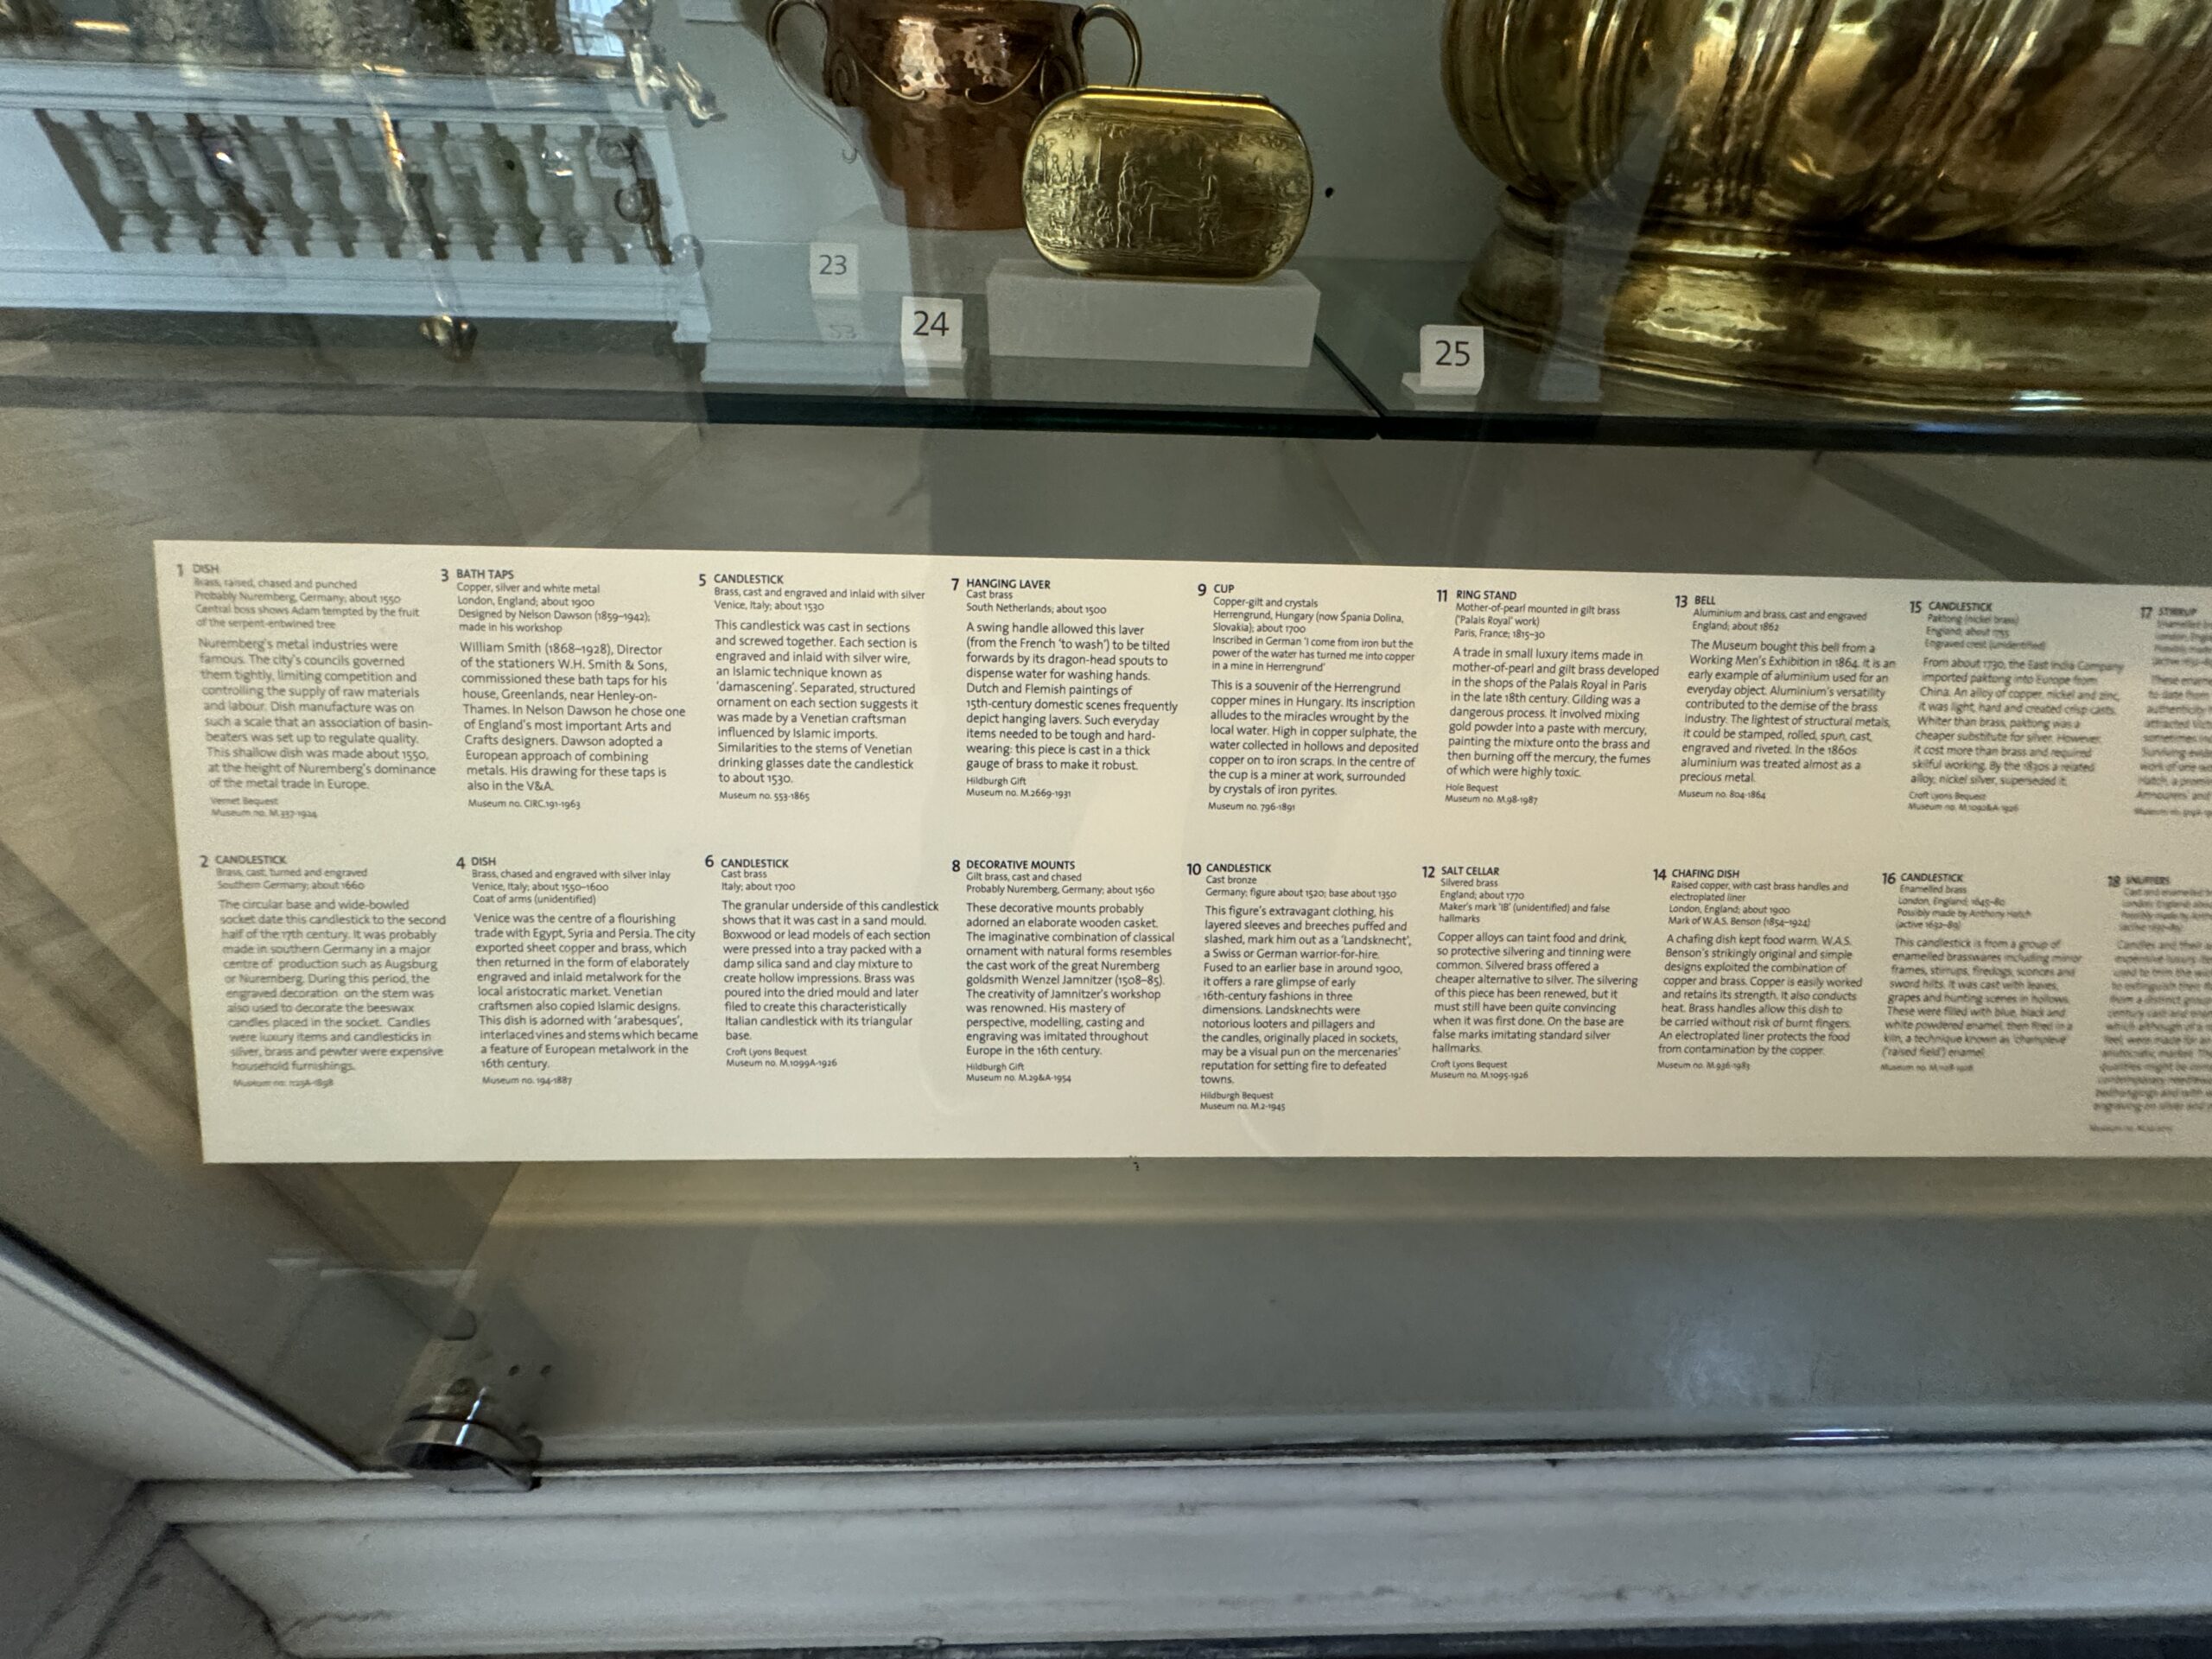 23
24
25
1 DISH
Brass, raised, chased and punched
Probably Nuremberg, Germany; about 1550
Central boss shows Adam tempted by the fruit
of the serpent-entwined tree
Nuremberg's metal industries were
famous. The city's councils governed
them tightly, limiting competition and
controlling the supply of raw materials
and labour. Dish manufacture was on
such a scale that an association of basin-
beaters was set up to regulate quality.
This shallow dish was made about 1550,
at the height of Nuremberg's dominance
of the metal trade in Europe.
Vernet Bequest
Museum no. M.337-1924
2 CANDLESTICK
Brass, cast, turned and engraved
Southern Germany; about 1660
The circular base and wide-bowled
socket date this candlestick to the second
half of the 17th century. It was probably
made in southern Germany in a major
centre of production such as Augsburg
or Nuremberg. During this period, the
engraved decoration on the stem was
also used to decorate the beeswax
candles placed in the socket. Candles
were luxury items and candlesticks in
silver, brass and pewter were expensive
household furnishings.
Museum no.
3 BATH TAPS
Copper, silver and white metal
London, England; about 1900
Designed by Nelson Dawson (1859–1942);
made in his workshop
William Smith (1868–1928), Director
of the stationers W.H. Smith & Sons,
commissioned these bath taps for his
house, Greenlands, near Henley-on-
Thames. In Nelson Dawson he chose one
of England's most important Arts and
Crafts designers. Dawson adopted a
European approach of combining
metals. His drawing for these taps is
also in the V&A.
Museum no. CIRC.191-1963
4 DISH
Brass, chased and engraved with silver inlay
Venice, Italy; about 1550–1600
Coat of arms (unidentified)
Venice was the centre of a flourishing
trade with Egypt, Syria and Persia. The city
exported sheet copper and brass, which
then returned in the form of elaborately
engraved and inlaid metalwork for the
local aristocratic market. Venetian
craftsmen also copied Islamic designs.
This dish is adorned with 'arabesques',
interlaced vines and stems which became
a feature of European metalwork in the
16th century.
Museum no. 194-1887
5 CANDLESTICK
Brass, cast and engraved and inlaid with silver
Venice, Italy; about 1530
This candlestick was cast in sections
and screwed together. Each section is
engraved and inlaid with silver wire,
an Islamic technique known as
'damascening'. Separated, structured
ornament on each section suggests it
was made by a Venetian craftsman
influenced by Islamic imports.
Similarities to the stems of Venetian
drinking glasses date the candlestick
to about 1530.
Museum no. 553-1865
6 CANDLESTICK
Cast brass
Italy; about 1700
The granular underside of this candlestick
shows that it was cast in a sand mould.
Boxwood or lead models of each section
were pressed into a tray packed with a
damp silica sand and clay mixture to
create hollow impressions. Brass was
poured into the dried mould and later
filed to create this characteristically
Italian candlestick with its triangular
base.
Croft Lyons Bequest
Museum no. M.1099A-1926
7 HANGING LAVER
Cast brass
South Netherlands; about 1500
A swing handle allowed this laver
(from the French 'to wash') to be tilted
forwards by its dragon-head spouts to
dispense water for washing hands.
Dutch and Flemish paintings of
15th-century domestic scenes frequently
depict hanging lavers. Such everyday
items needed to be tough and hard-
wearing: this piece is cast in a thick
gauge of brass to make it robust.
Hildburgh Gift
Museum no. M.2669-1931
8 DECORATIVE MOUNTS
Gilt brass, cast and chased
Probably Nuremberg, Germany; about 1560
These decorative mounts probably
adorned an elaborate wooden casket.
The imaginative combination of classical
ornament with natural forms resembles
the cast work of the great Nuremberg
goldsmith Wenzel Jamnitzer (1508–85).
The creativity of Jamnitzer's workshop
was renowned. His mastery of
perspective, modelling, casting and
engraving was imitated throughout
Europe in the 16th century.
Hildburgh Gift
Museum no. M.29&A-1954
9 CUP
Copper-gilt and crystals
Herrengrund, Hungary (now Špania Dolina,
Slovakia); about 1700
Inscribed in German 'I come from iron but the
power of the water has turned me into copper
in a mine in Herrengrund'
This is a souvenir of the Herrengrund
copper mines in Hungary. Its inscription
alludes to the miracles wrought by the
local water. High in copper sulphate, the
water collected in hollows and deposited
copper on to iron scraps. In the centre of
the cup is a miner at work, surrounded
by crystals of iron pyrites.
Museum no. 796-1891
10 CANDLESTICK
Cast bronze
Germany; figure about 1520; base about 1350
This figure's extravagant clothing, his
layered sleeves and breeches puffed and
slashed, mark him out as a 'Landsknecht',
a Swiss or German warrior-for-hire.
Fused to an earlier base in around 1900,
it offers a rare glimpse of early
16th-century fashions in three
dimensions. Landsknechts were
notorious looters and pillagers and
the candles, originally placed in sockets,
may be a visual pun on the mercenaries'
reputation for setting fire to defeated
towns.
Hildburgh Bequest
Museum no. M.2-1945
11 RING STAND
Mother-of-pearl mounted in gilt brass
('Palais Royal' work)
Paris, France; 1815–30
A trade in small luxury items made in
mother-of-pearl and gilt brass developed
in the shops of the Palais Royal in Paris
in the late 18th century. Gilding was a
dangerous process. It involved mixing
gold powder into a paste with mercury,
painting the mixture onto the brass and
then burning off the mercury, the fumes
of which were highly toxic.
Hole Bequest
Museum no. M.98-1987
12 SALT CELLAR
Silvered brass
England; about 1770
Maker's mark 'IB' (unidentified) and false
hallmarks
Copper alloys can taint food and drink,
so protective silvering and tinning were
common. Silvered brass offered a
cheaper alternative to silver. The silvering
of this piece has been renewed, but it
must still have been quite convincing
when it was first done. On the base are
false marks imitating standard silver
hallmarks.
Croft Lyons Bequest
Museum no. M.1095-1926
13 BELL
Aluminium and brass, cast and engraved
England; about 1862
The Museum bought this bell from a
Working Men's Exhibition in 1864. It is an
early example of aluminium used for an
everyday object. Aluminium's versatility
contributed to the demise of the brass
industry. The lightest of structural metals,
it could be stamped, rolled, spun, cast,
engraved and riveted. In the 1860s
aluminium was treated almost as a
precious metal.
Museum no. 804-1864
14 CHAFING DISH
Raised copper, with cast brass handles and
electroplated liner
London, England; about 1900
Mark of W.A.S. Benson (1854–1924)
A chafing dish kept food warm. W.A.S.
Benson's strikingly original and simple
designs exploited the combination of
copper and brass. Copper is easily worked
and retains its strength. It also conducts
heat. Brass handles allow this dish to
be carried without risk of burnt fingers.
An electroplated liner protects the food
from contamination by the copper.
Museum no. M.936-1983
15 CANDLESTICK
Paktong (nickel brass)
England; about 1755
Engraved crest (unidentified)
From about 1730, the East India Company
imported paktong into Europe from
China. An alloy of copper, nickel and zinc,
it was light, hard and created crisp casts.
Whiter than brass, paktong was a
cheaper substitute for silver. However,
it cost more than brass and required
skilful working. By the 1830s a related
alloy, nickel silver, superseded it.
Croft Lyons Bequest
Museum no.
16 CANDLESTICK
Enamelled brass
London, England; 1645–80
Possibly made by Anthony Hatch
This candlestick is from a group of
enamelled brasswares including mirror
frames, stirrups, firedogs, sconces and
sword hilts. It was cast with leaves,
grapes and hunting scenes in hollows.
These were filled with blue, black and
white powdered enamel, then fired in a
kiln, a technique known as 'champlevé'
('raised field') enamel.
Museum no.
17 STIRRUP
18 SNUFFERS